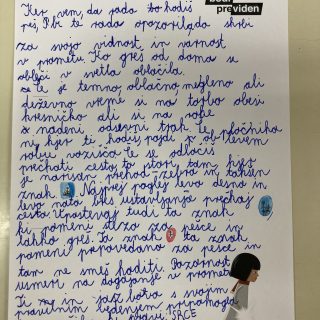 Ker vem, da rada
peš,
bodi
previden
za svojo vidnost in varnost
v prometu. Ko greš od doma se
obleči v svetla oblačila.
Če je temno, oblačno, megleno ali
deževno vreme si na torbo obesi
kresničko ali si na roke
nadeni odsevni trak. Če pločnika
ni, kjer ti hodiš, pojdi v ob levem
robu vozišča. Če se odločiš
prečkati cesto, to stori tam, kjer
je narisan prehod zebra in takšen
znak Najprej poglej levo desno in
levo nato brez ustavljanja prečkaj
cesto. Upoštevaj tudi ta znak
ki pomeni steza za pešce in
lahko greš. Ta znak ta znak
pomeni prepovedano za pešce in
tam ne smeš hoditi. Pozornost
usmeri na dogajanje v prometu
Ti in jaz bova s svojim
pravilnim vedenjem pripomogla
SRCE